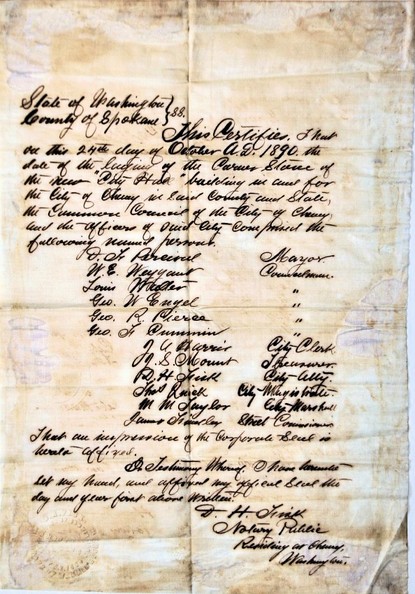 State of Washington } ss.
County of Spokane }
This Certifies. That
on this 24th day of October A.D. 1890. the
date of the laying of the Corner Stone of
the new "City Hall" building in and for
the City of Cheney in said County and State,
the Common Council of the City of Cheney
and the Officers of said City Comprised the
following named persons.
D. F. Percival Mayor
W. E. Weygant Councilman
Louis Walter "
Geo. W Engel "
Geo. R. Pierce "
Geo. F Cummin "
J A Harris City Clerk
J. S. Mount Treasurer
D. H Fisk City Atty.
Thos Quick City Magistrate
M M Taylor City Marshall
James Street Commissioner
That an impression of the Corporate Seal is
hereto affixed.
In Testimony Whereof, I have hereunto
set my hand, and affixed my official Seal the
day and year first above written.
D. H. Fisk
Notary Public
Residing at Cheney,
Washington.